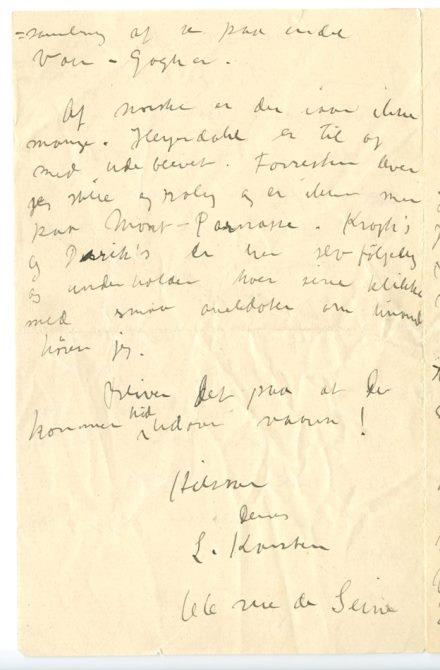 =samling af se paa endel
Van-Gogh'er.
Af norske er der iaar ikke
mange. Heyerdahl er til og
med ude blevet. Forresten lever
jeg stille og rolig og er ikke mer
paa Mont-Parnasse. Krogh's
og Dirik's er her selvfølgelig
og underholder hver sine klikke
med smaa anekdoter om
hører jeg.
Bliver det paa at De
kommer hid udover vaaren!
Hilsen
Deres
L. Karsten
66 rue de Seine